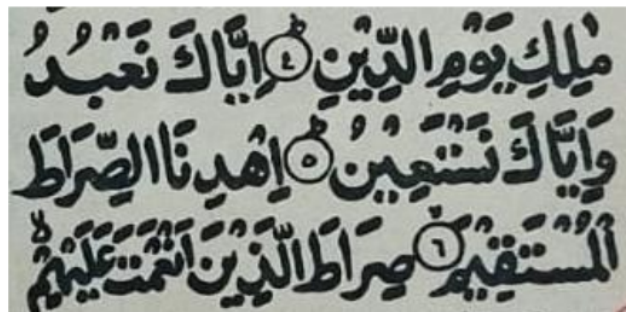 مٰلِكِ يَوْمِ الدِّيْنِ ﴿٤﴾ اِيَّاكَ نَعْبُدُ
وَاِيَّاكَ نَسْتَعِيْنُ ﴿٥﴾ اِهْدِنَا الصِّرَاطَ
الْمُسْتَقِيْمَ ﴿٦﴾ صِرَاطَ الَّذِيْنَ اَنْعَمْتَ عَلَيْهِمْ